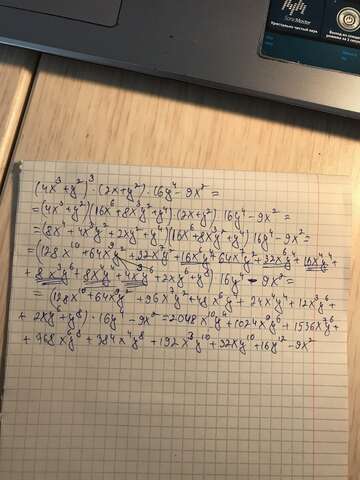 SonicMaster
Кристально чистый звук
(4x³+y²)³·(2x+y²)·16y⁴-9x²=
=(4x³+y²)(16x⁶+8x³y²+y⁴)·(2x+y²)·16y⁴-9x²=
=(8x⁴+4x³y²+2xy²+y⁴)(16x⁶+8x³y²+y⁴)16y⁴-9x²=
=(128x¹⁰+64x⁹y²+32x⁷y²+16x⁶y⁴+64x⁷y²+32x⁶y⁴+16x⁴y⁴+
+8x³y⁶+8x⁴y⁴+4x³y⁶+2xy⁶+y⁸)16y⁴-9x²=
=(128x¹⁰+64x⁹y²+96x⁷y²+48x⁶y⁴+24x⁴y⁴+12x³y⁶+
+2xy⁶+y⁸)·16y⁴-9x²=2048x¹⁰y⁴+1024x⁹y⁶+1536x⁷y⁶+
+968x⁶y⁸+384x⁴y⁸+192x³y¹⁰+32xy¹⁰+16y¹²-9x²